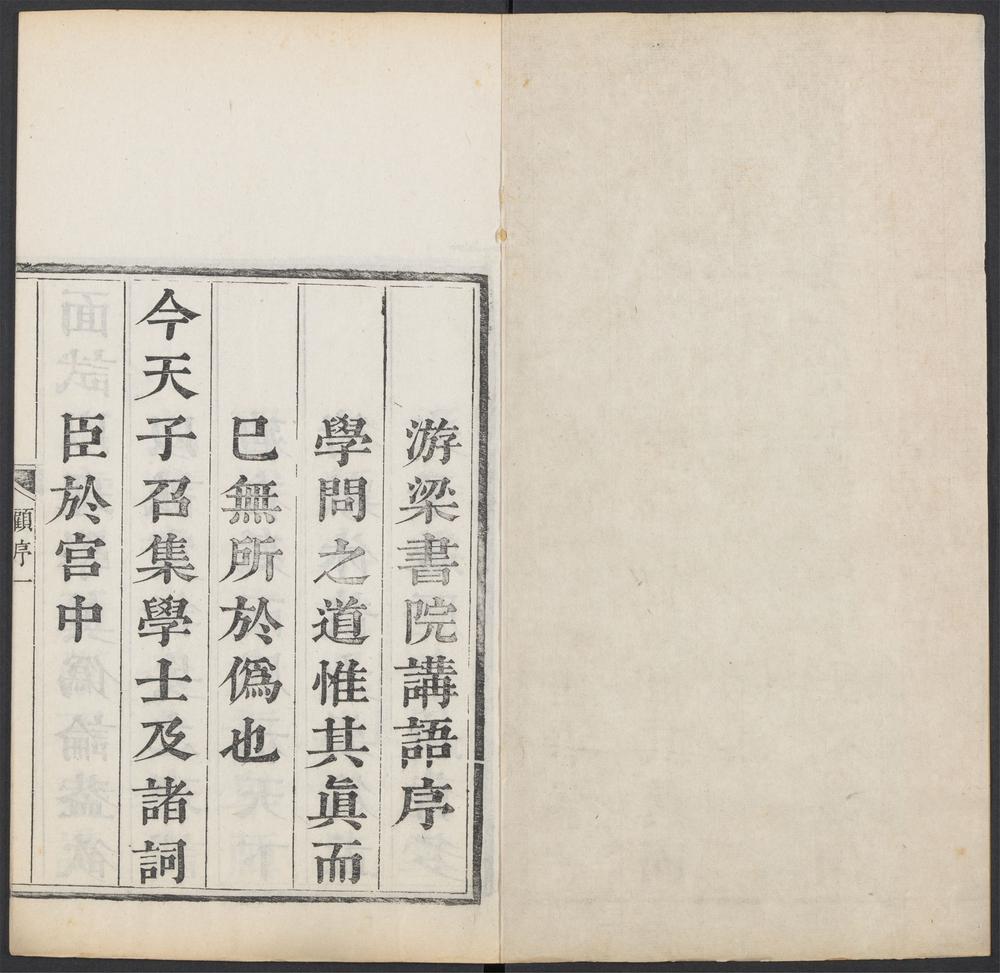 游梁書院講語序
學問之道惟其眞而
已無所於僞也
今天子召集學士及諸詞
臣於宫中
顧序一